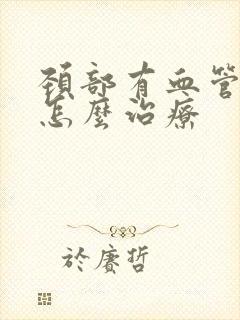 頸部有血管
怎麼治療
於賡哲